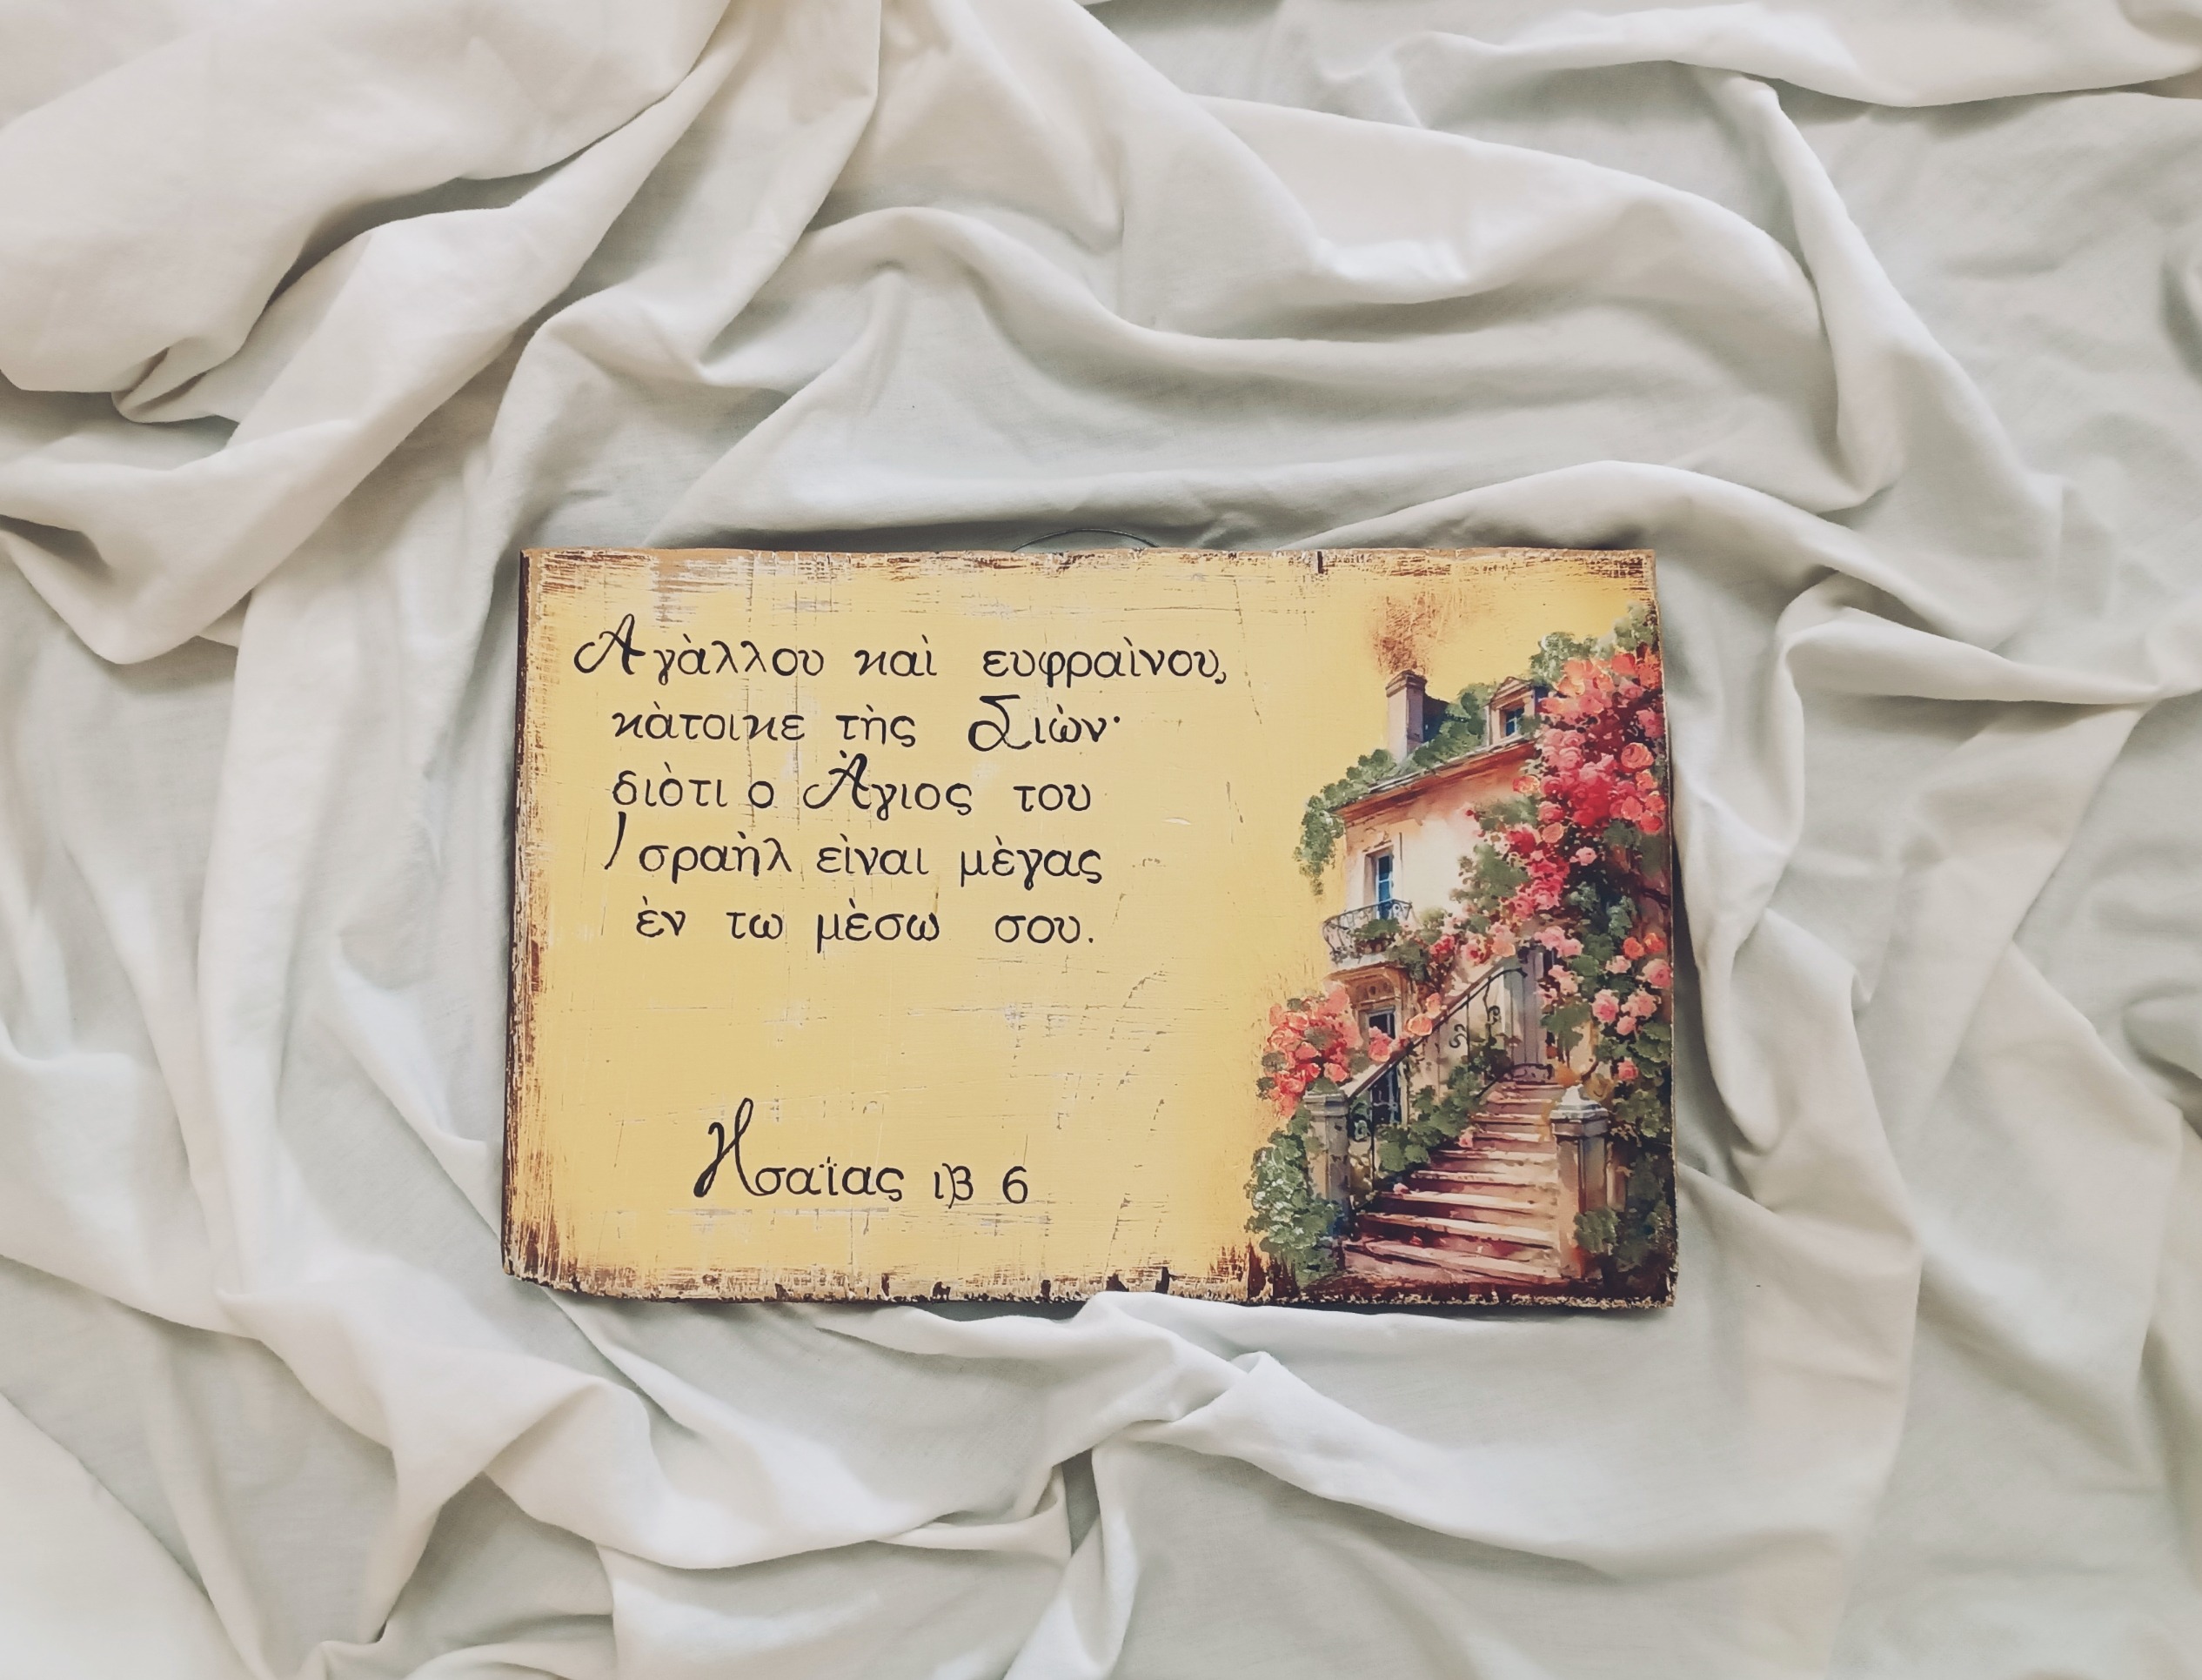 Αγὰλλου καὶ ευφραὶνου,
κὰτοικε τὴς Σιὼν·
διὸτι ο Ἂγιος του
Ισραὴλ εὶναι μὲγας
ὲν τω μὲσω σου.
Ησαϊας ιβ 6